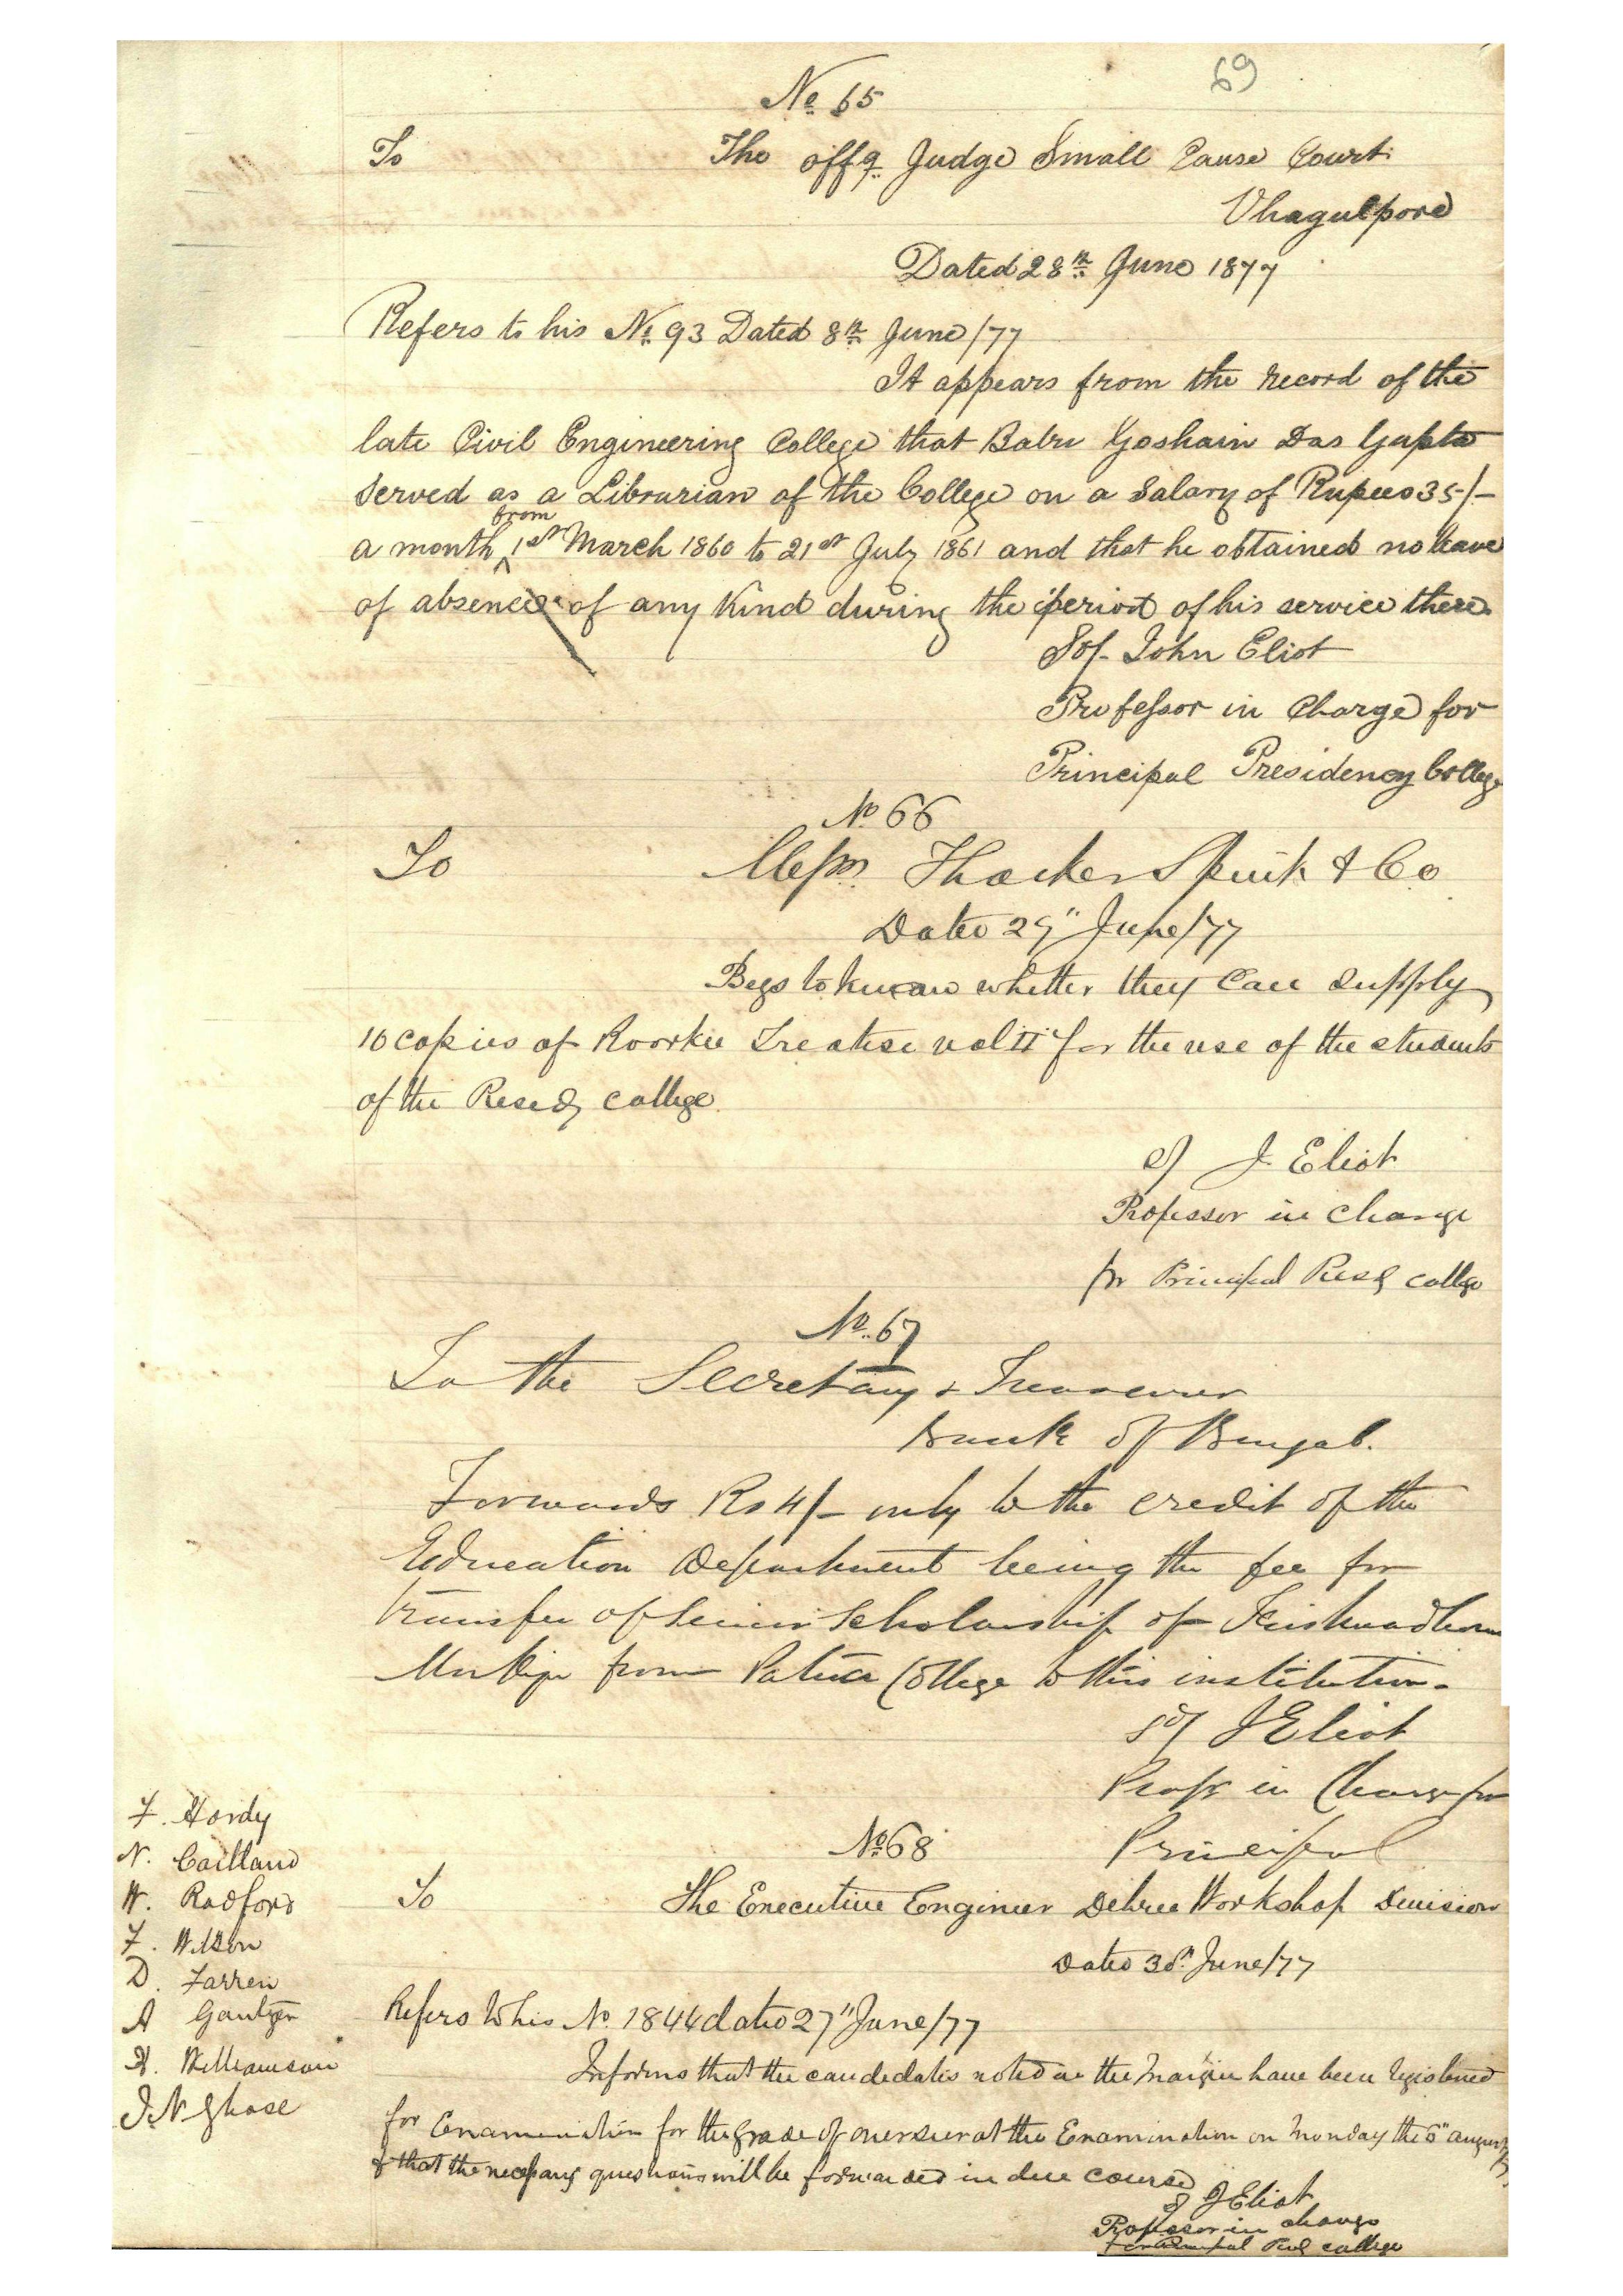 69
No 65
To The offg. Judge Small Cause Court
Bhagulpore
Dated 28th June 1877
Refers to his No. 93 Dated 8th June/77
It appears from the record of the
late Civil Engineering College that Babu Goshain Das Gupta
served as a Librarian of the College on a Salary of Rupees 35/-
from
a month 1st March 1860 to 21st July 1861 and that he obtained no leave
of absence of any kind during the period of his service there.
Sd/- John Eliot
Professor in Charge for
Principal Presidency College
No 66
To Messrs. Thacker Spink & Co
Dated 29" June/77
Begs to know whether they can supply
10 copies of Roorkee Treatise vol II for the use of the students
of the Presdy college
Sd/ J. Eliot
Professor in charge
for Principal Presy college
No. 67
To the Secretary & Treasurer
Bank of Bengal.
Forwards Rs 4/- only to the credit of the
Education Department being the fee for
transfer of Senior Scholarship of
from Patna College to this institution.
Sd/ J Eliot
Profr in Charge for
Principal
No 68
To The Executive Engineer Dehree Workshop Division
Dated 30th June/77
Refers to his No. 1844 dated 27" June/77
Informs that the candedates noted in the margin have been registered
for Examination for the grade of overseer at the Examination on Monday the 6" august
& that the necessary questions will be forwarded in due course
Sd J Eliot
Professor in charge
for Principal Presy college
F. Hardy
N. Cailland
W. Radford
F. Wilson
D. Farren
A Gantzer
H. Williamson
J. N Ghose